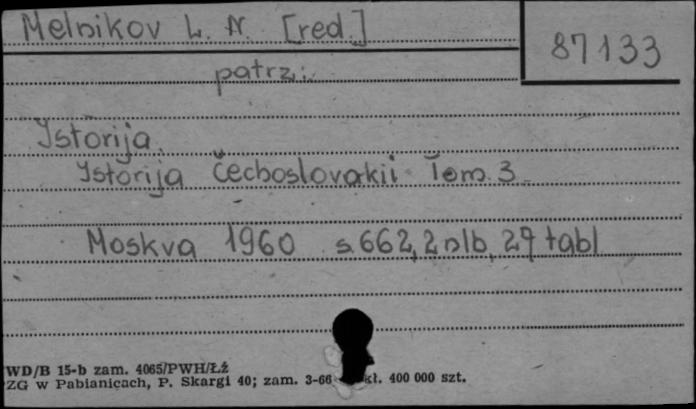 Melnikov L. N. [red.]
87133
patrz:
Istorija
Istorija Čechoslovakii Tom 3
Moskva 1960 s. 662, 2 nlb, 27 tabl
WD/B 15-b zam. 4065/PWH/Łź
ZG w Pabianicach, P. Skargi 40; zam. 3-66 kł. 400 000 szt.